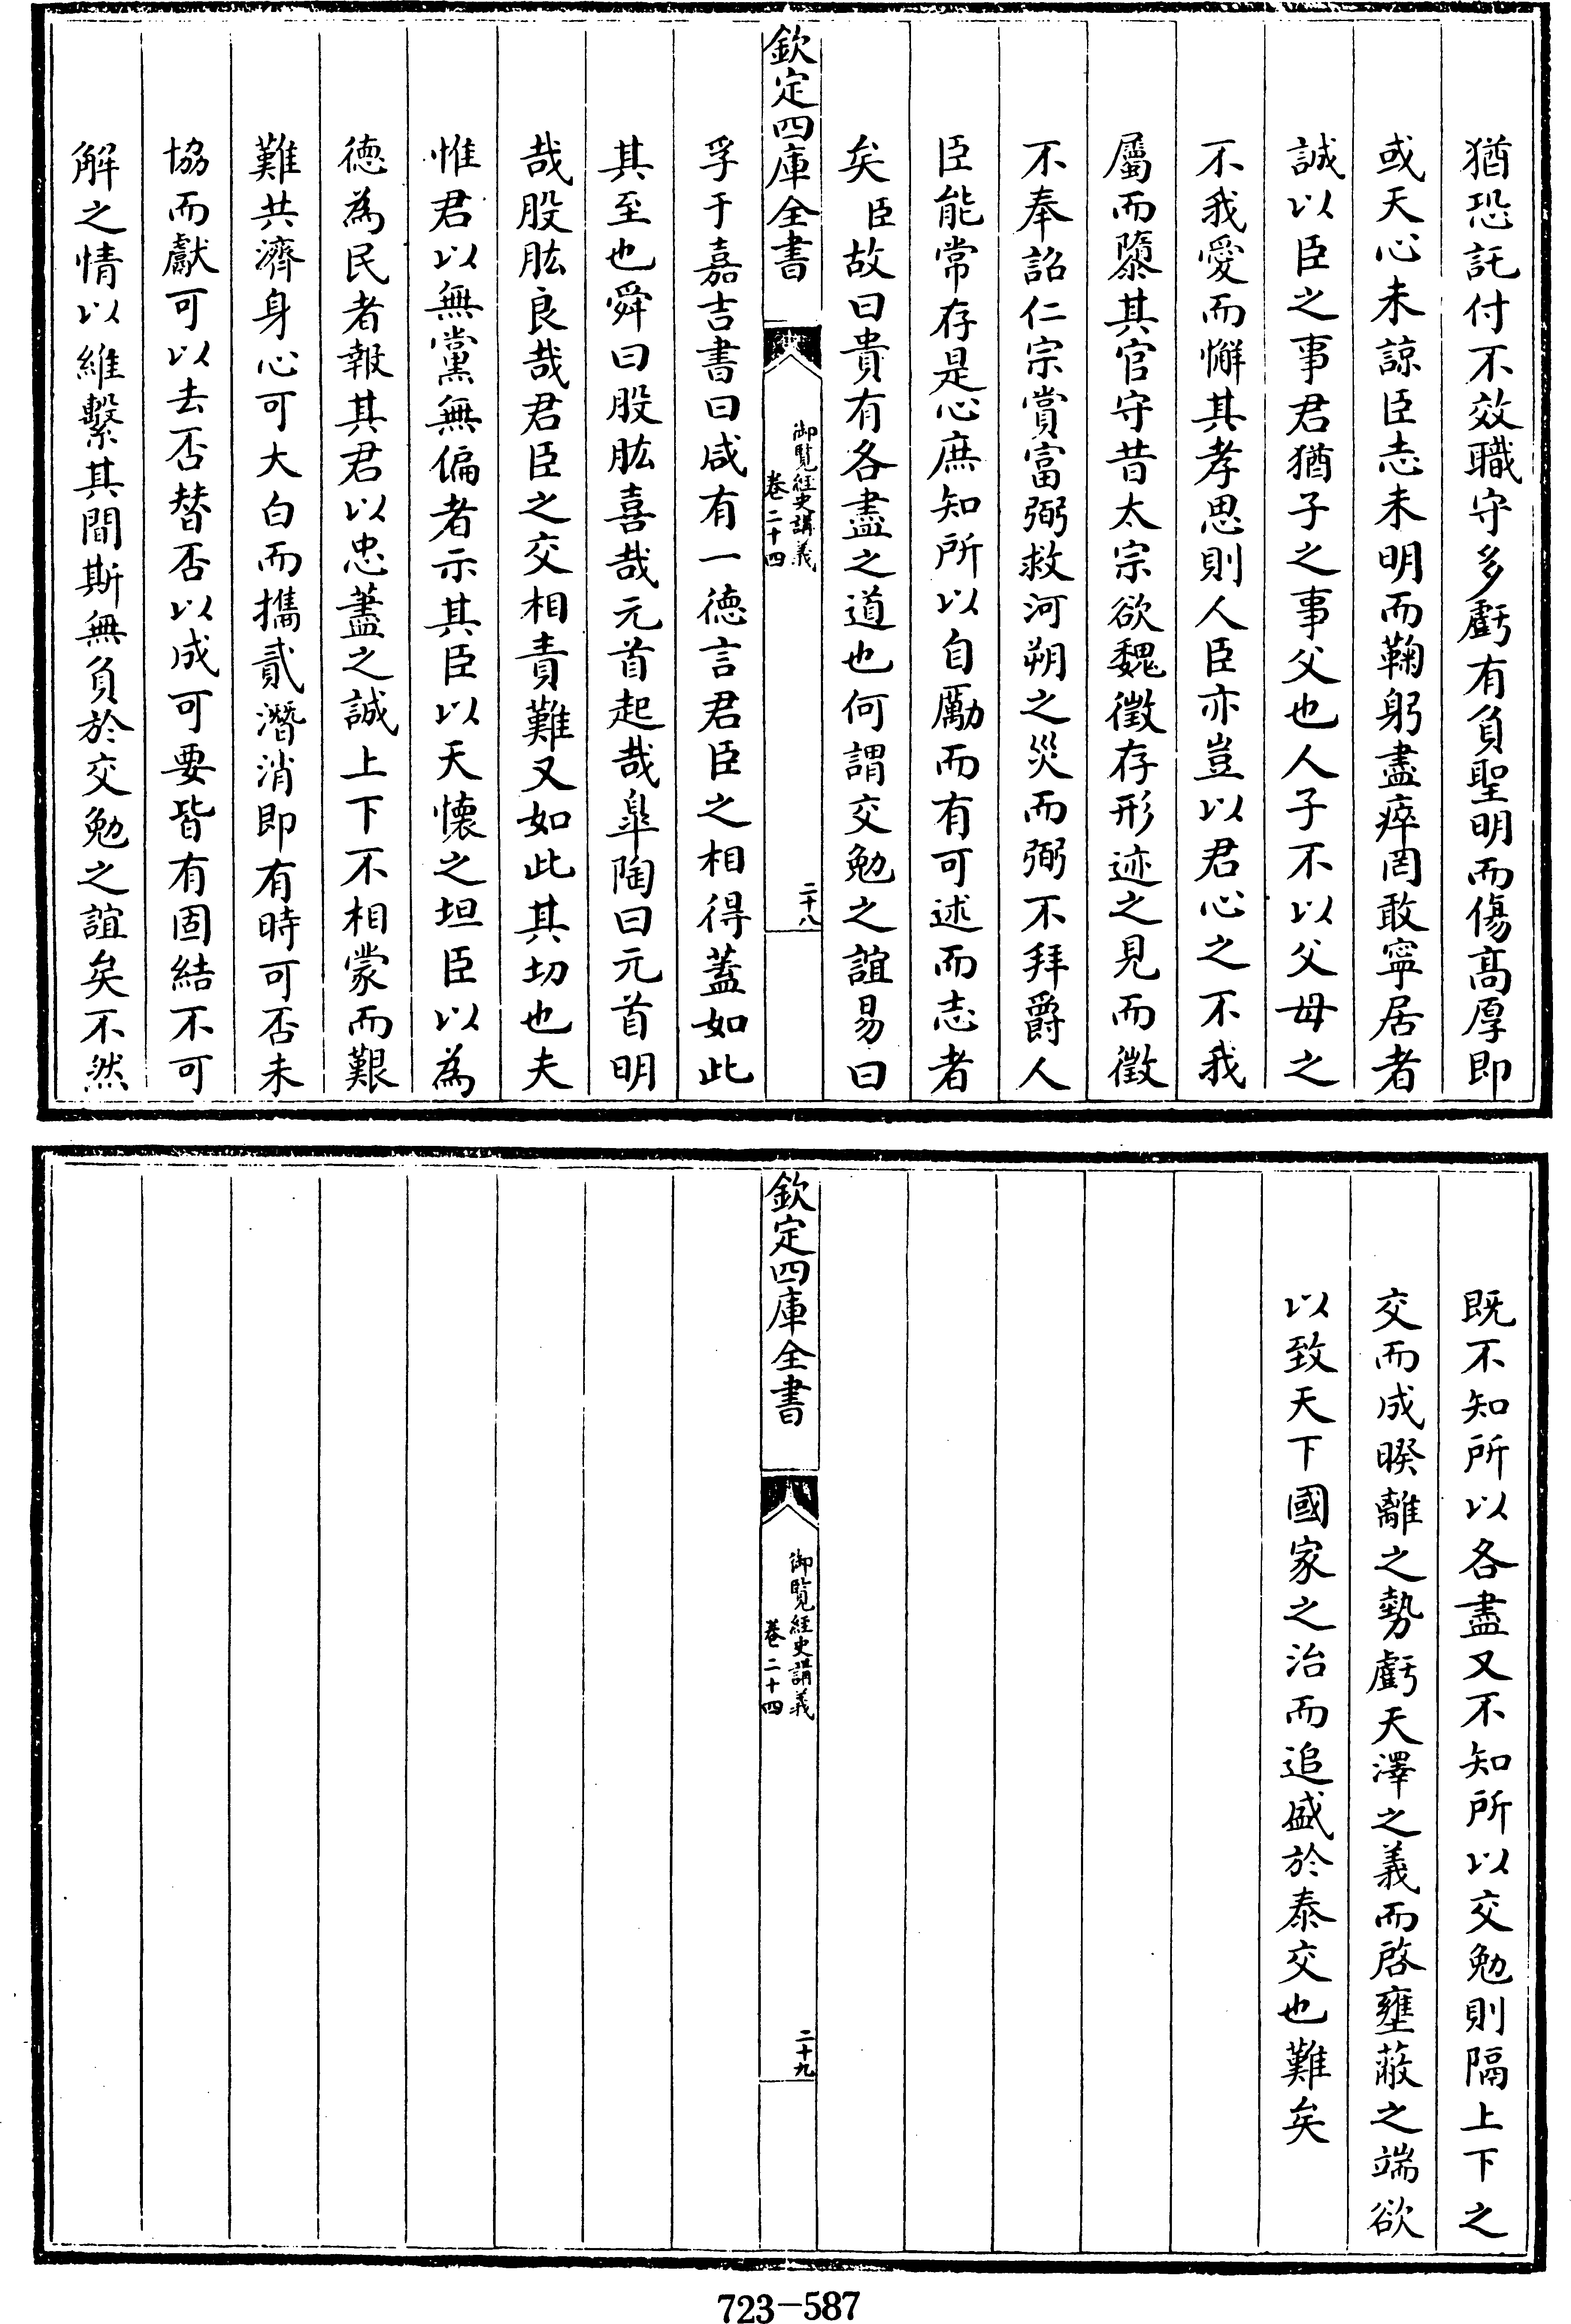 猶恐託付不效職守多虧有負聖明而傷高厚即
或天心未諒臣志未明而鞠躬盡瘁罔敢寧居者
誠以臣之事君猶子之事父也人子不以父母之
不我愛而懈其孝思則人臣亦豈以君心之不我
屬而隳其官守昔太宗欲魏徵存形迹之見而徵
不奉詔仁宗賞富弼救河朔之災而弼不拜爵人
臣能常存是心庶知所以自勵而有可述而志者
矣臣故曰貴有各盡之道也何謂交勉之誼易曰
欽定四庫全書
御覽經史講義
卷二十四
二十八
孚于嘉吉書曰咸有一德言君臣之相得蓋如此
其至也舜曰股肱喜哉元首起哉臯陶曰元首明
哉股肱良哉君臣之交相責難又如此其切也夫
惟君以無黨無偏者示其臣以天懷之坦臣以為
德為民者報其君以忠藎之誠上下不相蒙而艱
難共濟身心可大白而攜貳潛消即有時可否未
協而獻可以去否替否以成可要皆有固結不可
解之情以維繫其間斯無負於交勉之誼矣不然
既不知所以各盡又不知所以交勉則隔上下之
交而成暌離之勢虧天澤之義而啓壅蔽之端欲
以致天下國家之治而追盛於泰交也難矣
欽定四庫全書
御覽經史講義
卷二十四
二十九
723-587